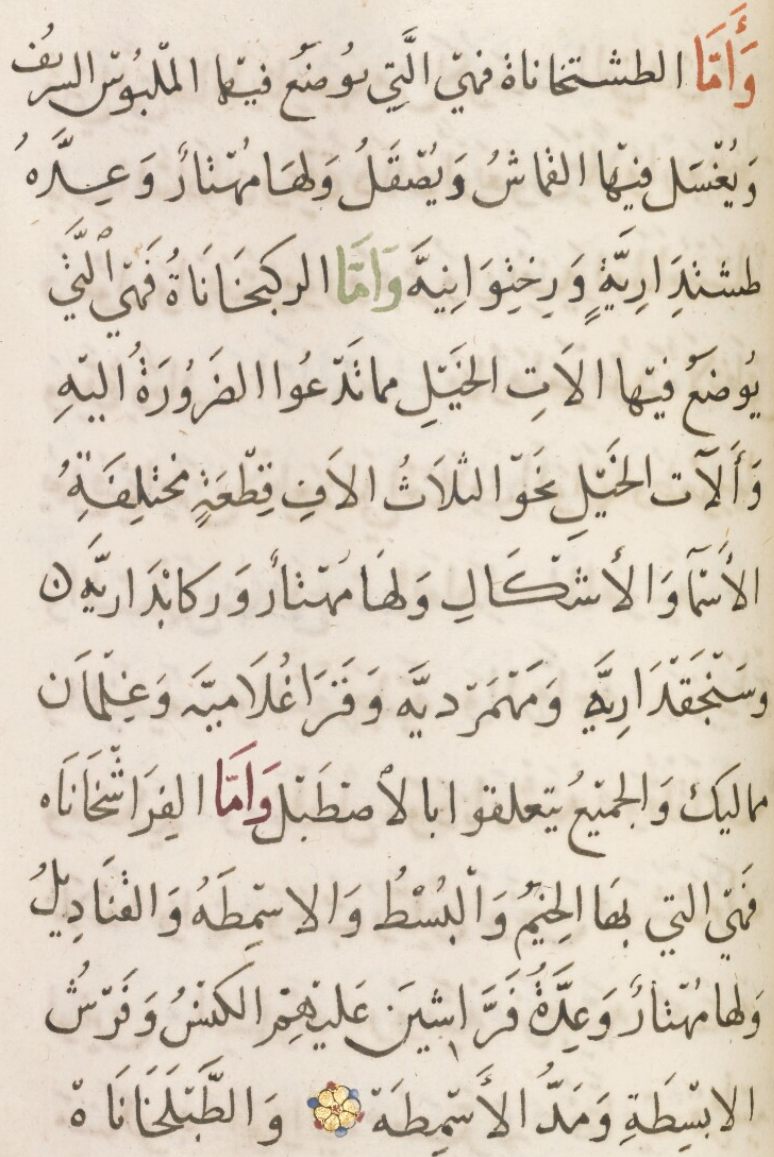 وَأَمَّا الطشتخاناة فهي الَّتِي يوُضَعُ فيها المَلبُوسُ الشريفُ
وَيُغْسَل فيها القماشُ وَيُصْقَلُ وَلهَا مُهتارٌ وَعِدَّهُ
طشتدَارِيَّةٍ وَرِختِوَانِيهَّ وَامَّا الركبخَانَاةُ فَهي الَّتي
يُوضَعُ فيها الاَتِ الخَيْلِ مما تَدْعُوا الضَرُورَةُ اليْهِ
وَأَلآت الخَيْلِ نَحَوْ الثلاَثُ الاَفِ قِطْعَةٍ مختلِفَةِ
الأَسْمآ وَالأشْكَالِ وَلهَا مُهْتارٌ وَركابْدَاريَّه
وسَنْجَقْدَارِيَّه وَمَهْمَرْديَّه وَقَرَاغُلاَميَّه وَغِلْمَان
مماليَك وَالجمَيْعُ يتعلقوا بالأصْطَبْل وَامَّا الفِرَاشْخَانَاه
فَهْيَ التي بهَا الِخيَمُ وَالبُسْطُ وَالاسْمِطَهُ وَالقَنَادِيْلُ
وَلها مُهْتارٌ وَعِدَّةُ فَرَّاشِينَ عَليْهِمْ الكَنْسُ وَفَرْشُ
الابْسِطَةِ وَمَدُّ الأَسْمِطَة وَالطَّبْلَخَانَاة